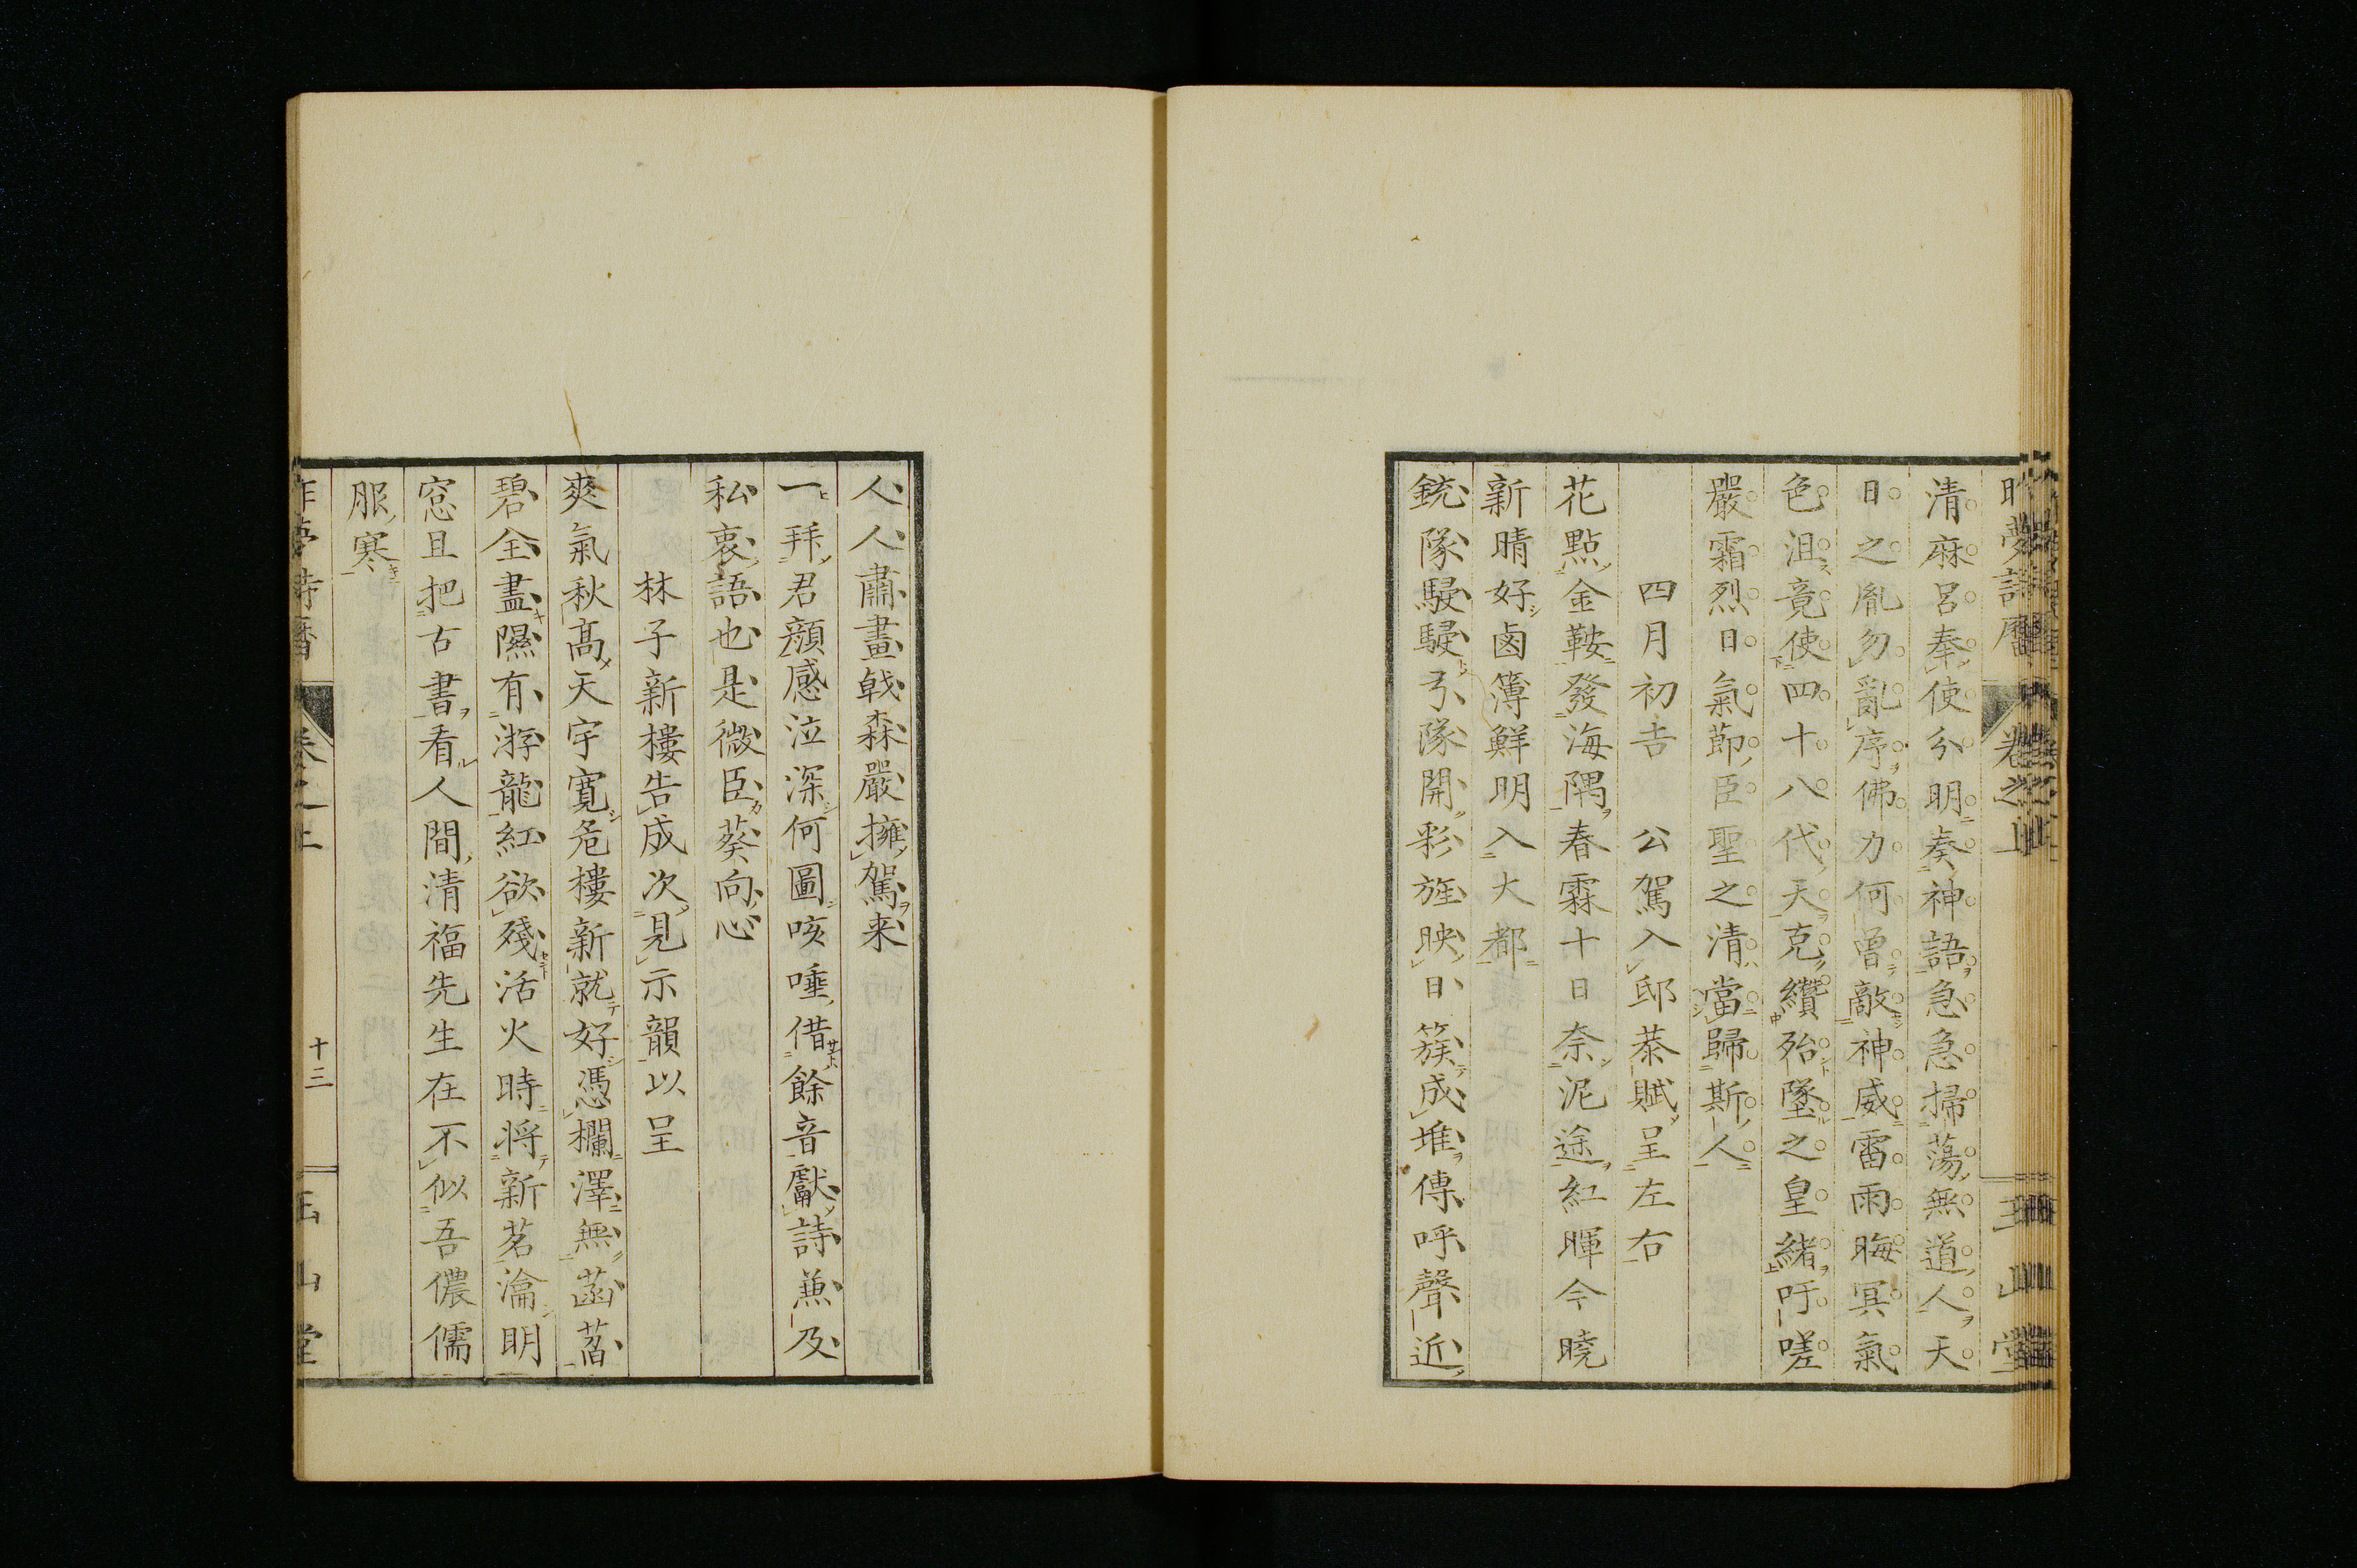 昨夢詩曆 卷之上 玉山堂
清麻呂奉使分明奏神語急急掃蕩無道人天
日之胤勿亂序佛力何曾敵神威雷雨晦冥氣
色沮竟使四十八代天克纘殆墜之皇緒吁嗟
嚴霜烈日氣節臣聖之清當歸斯人
四月初吉 公駕入邸恭賦呈左右
花點金鞍發海隅春霖十日奈泥途紅暉今曉
新晴好鹵簿鮮明入大都
銃隊駸駸弓隊開彩旌映日簇成堆傳呼聲近
人人肅畫戟森嚴擁駕来
一拜君顔感泣深何圖咳唾借餘音獻詩兼及
私衷語也是微臣葵向心
林子新樓告成次見示韻以呈
爽氣秋高天宇寬危樓新就好憑欄澤無菡萏
碧全盡隰有游龍紅欲殘活火時将新茗瀹明
窓且把古書看人間清福先生在不似吾儂儒
服寒
昨夢詩曆 卷之上 十三 玉山堂